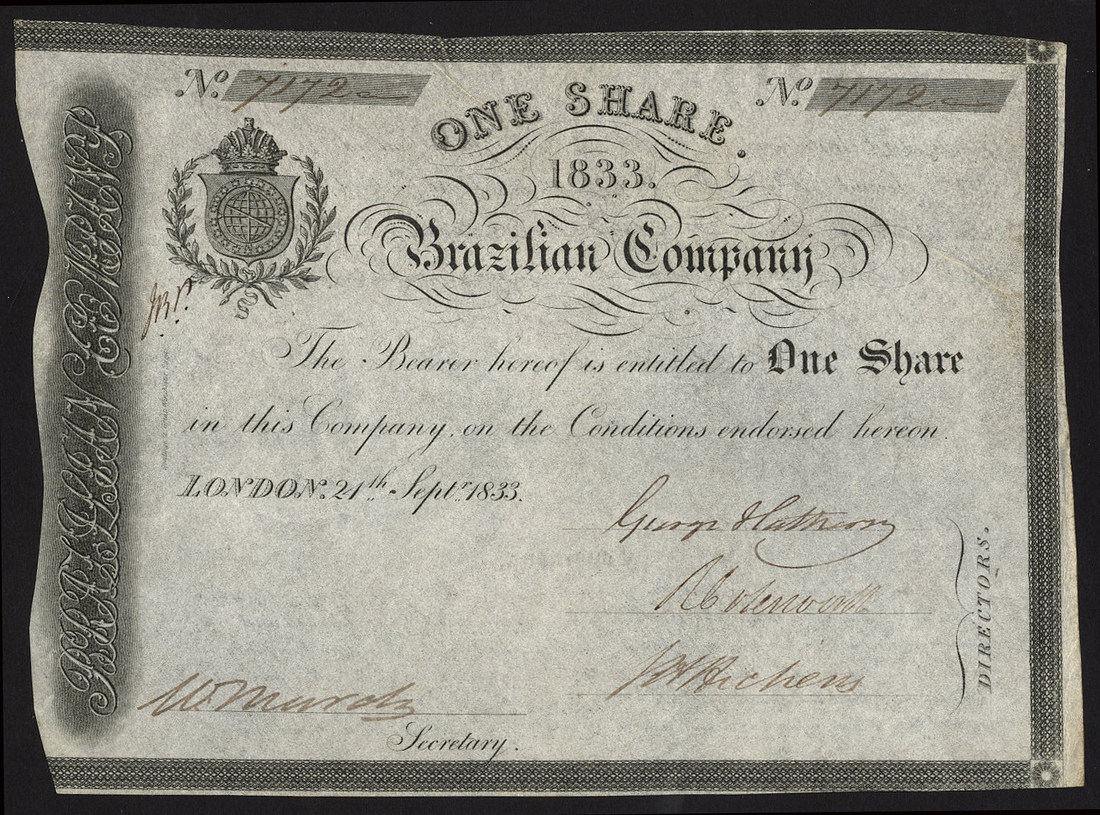 No. 7172
No. 7172
ONE SHARE.
1833.
Brazilian Company
BRAZILIAN COMPANY
The Bearer hereof is entitled to One Share
in this Company, on the Conditions endorsed hereon.
LONDON. 21th. Septr. 1833.
DIRECTORS.
Secretary.